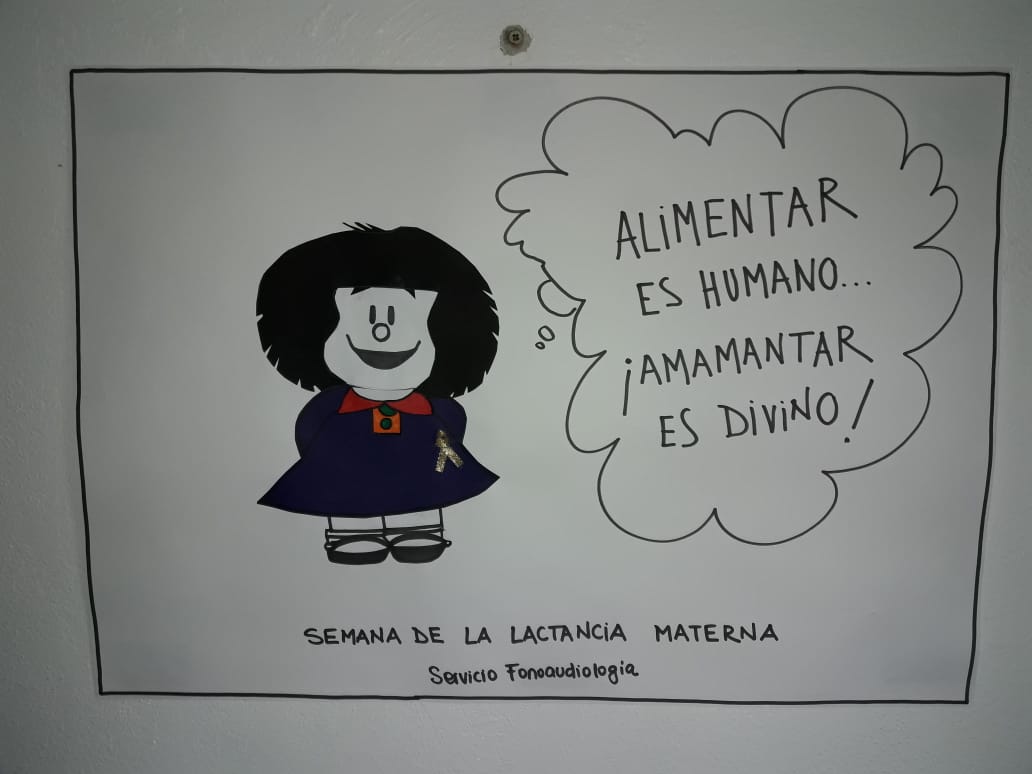 ALIMENTAR
ES HUMANO...
¡AMAMANTAR
ES DIVINO!
SEMANA DE LA LACTANCIA MATERNA
Servicio Fonoaudiologia